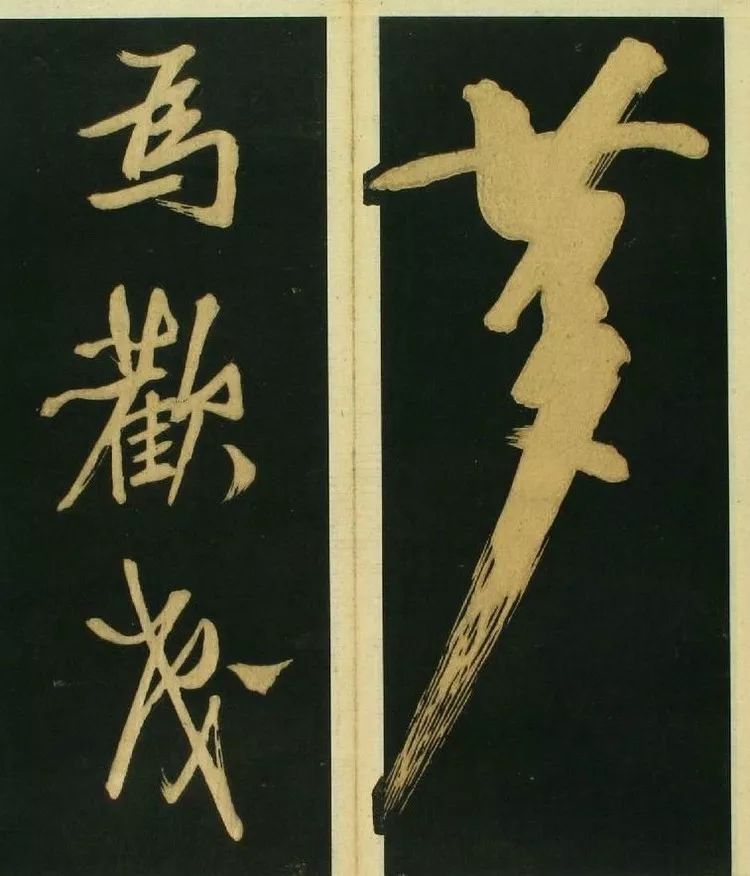 夢
為歡幾